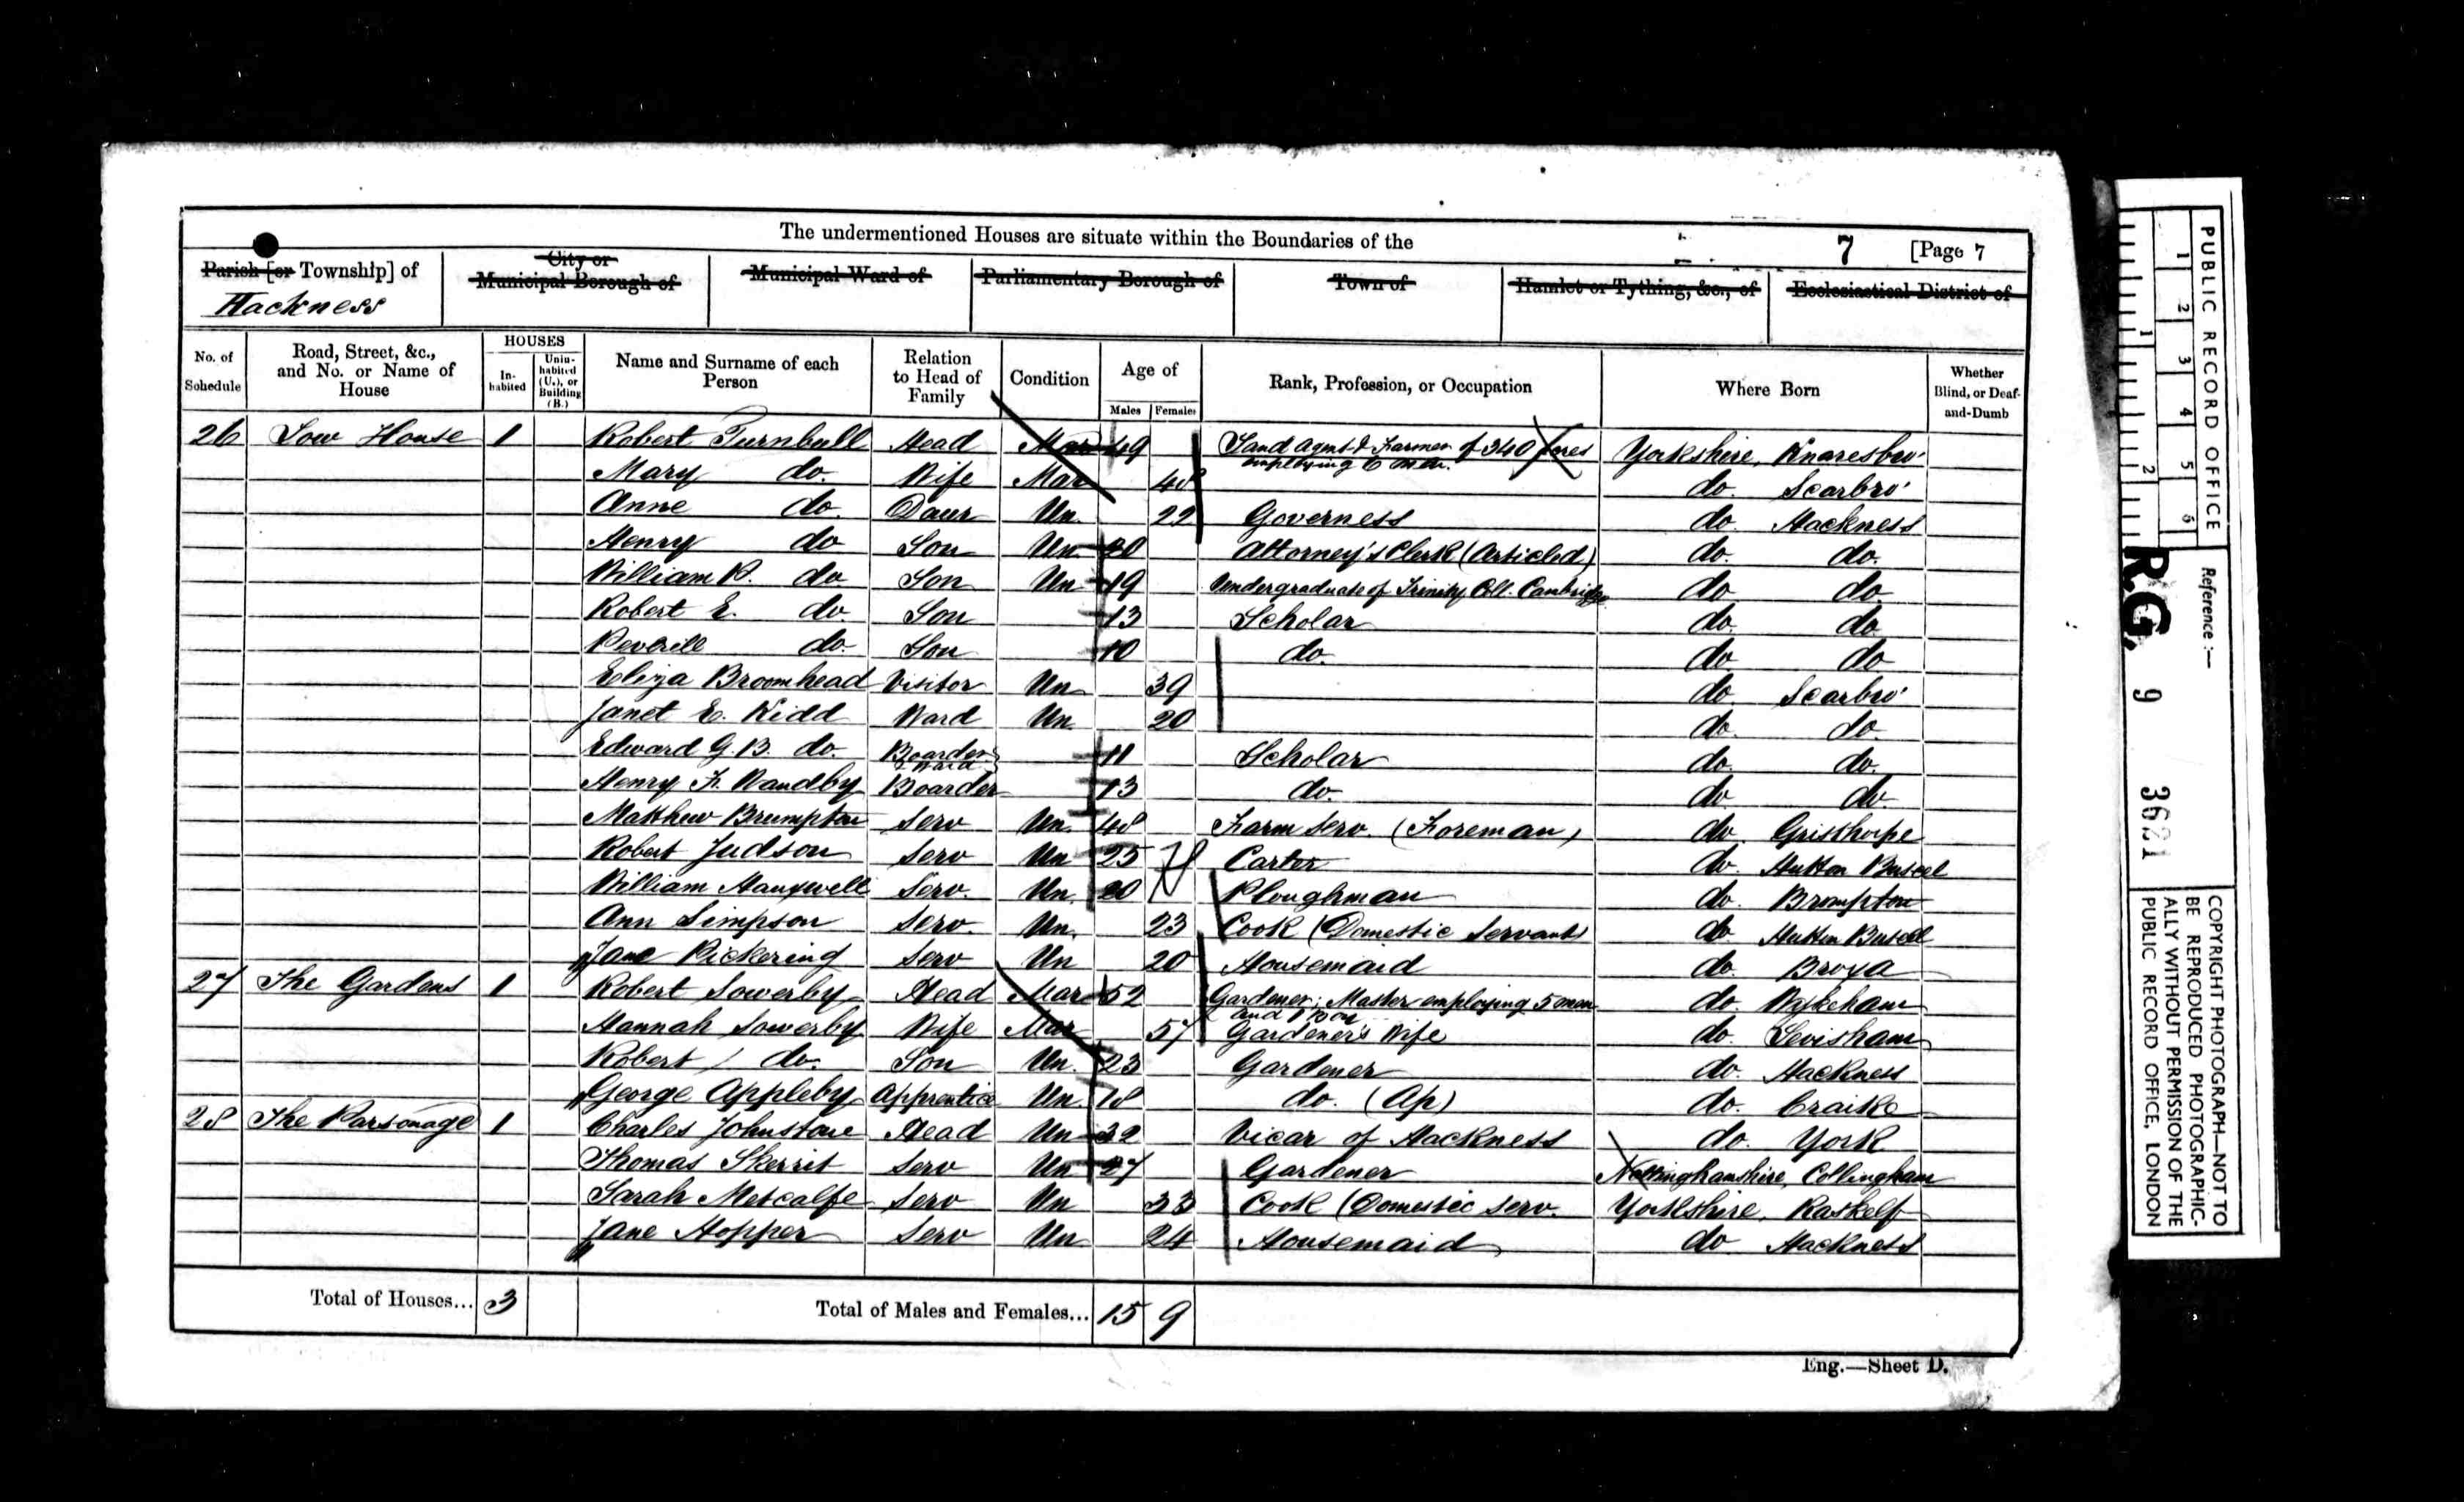 The undermentioned Houses are situate within the Boundaries of the 7 [Page 7
Parish [or Township] of City or Municipal Borough of Municipal Ward of Parliamentary Borough of Town of Hamlet or Tything, &c., of Ecclesiastical District of
Hackness
No. of Schedule Road, Street, &c., and No. or Name of House HOUSES Inhabited Uninhabited (U.), or Building (B.) Name and Surname of each Person Relation to Head of Family Condition Age of Males Females Rank, Profession, or Occupation Where Born Whether Blind, or Deaf-and-Dumb
26 Low House 1 Robert Turnbull Head Mar 49 Land Agent & Farmer of 340 Acres employing 6 men. Yorkshire, Knaresbro'
Mary do. Wife Mar 48 do. Scarbro'
Anne do. Daur Un. 22 Governess do. Hackness
Henry do Son Un 20 Attorney's Clerk (Articled) do. do.
William P. do Son Un 19 Undergraduate of Trinity Coll. Cambridge do do.
Robert E. do. Son 13 Scholar do. do
Peverill do. Son 10 do. do do
Eliza Broomhead Visitor Un 39 do Scarbro'
Janet E. Kidd Ward Un. 20 do. do.
Edward G. B. do. Boarder & Ward 11 Scholar do. do.
Henry F. Wandby Boarder 13 do. do do
Matthew Brumpton Serv Un. 48 Farm Serv. (Foreman) do Gristhorpe
Robert Judson Serv Un 25 Carter do. Hutton Buscel
William Serv. Un. 20 Ploughman do. Brompton
Ann Simpson Serv. Un. 23 Cook (Domestic Servant) do Hutton Buscel
Jane Pickering Serv Un 20 Housemaid do. Broxa
27 The Gardens 1 Robert Sowerby Head Mar 52 Gardener; Master employing 5 men and 1 Boy do. Wykeham
Hannah Sowerby Wife Mar 57 Gardener's Wife do. Levisham
Robert do. Son Un. 23 Gardener do. Hackness
George Appleby Apprentice Un 18 do. (Ap) do. Craike
28 The Parsonage 1 Charles Johnstone Head Un 32 Vicar of Hackness do. York
Thomas Skerrit Serv Un 27 Gardener Nottinghamshire, Collingham
Sarah Metcalfe Serv Un 33 Cook (Domestic Serv. Yorkshire, Raskelf
Jane Hopper Serv Un 24 Housemaid do Hackness
Total of Houses... 3 Total of Males and Females... 15 9
Eng.—Sheet D.
PUBLIC RECORD OFFICE
1 2 3 4 5 6
1 2
Reference :—
R.G. 9 3621
COPYRIGHT PHOTOGRAPH—NOT TO
BE REPRODUCED PHOTOGRAPHIC-
ALLY WITHOUT PERMISSION OF THE
PUBLIC RECORD OFFICE, LONDON